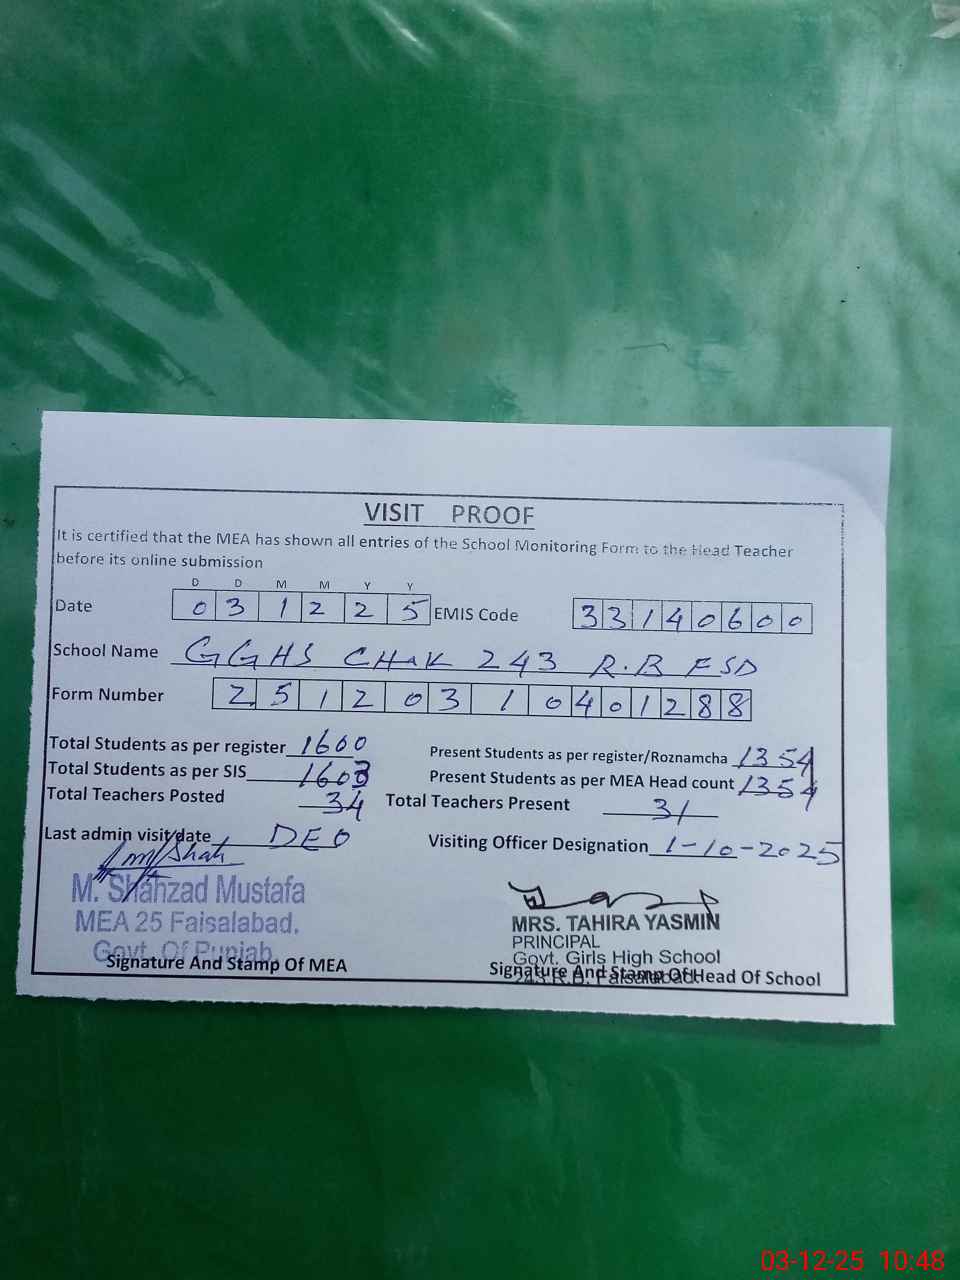 VISIT PROOF
It is certified that the MEA has shown all entries of the School Monitoring Form to the Head Teacher
before its online submission
D D M M Y Y
Date 0 3 1 2 2 5 EMIS Code 3 3 1 4 0 6 0 0
School Name GGHS CHAK 243 R.B FSD
Form Number 2 5 1 2 0 3 1 0 4 0 1 2 8 8
Total Students as per register 1600 Present Students as per register/Roznamcha 1354
Total Students as per SIS 1603 Present Students as per MEA Head count 1354
Total Teachers Posted 34 Total Teachers Present 31
Last admin visit/date DEO Visiting Officer Designation 1-10-2025
M. Shahzad Mustafa
MEA 25 Faisalabad.
Govt. Of Punjab.
Signature And Stamp Of MEA
MRS. TAHIRA YASMIN
PRINCIPAL
Govt. Girls High School
243 R.B. Faisalabad.
Signature And Stamp Of Head Of School
03-12-25 10:48